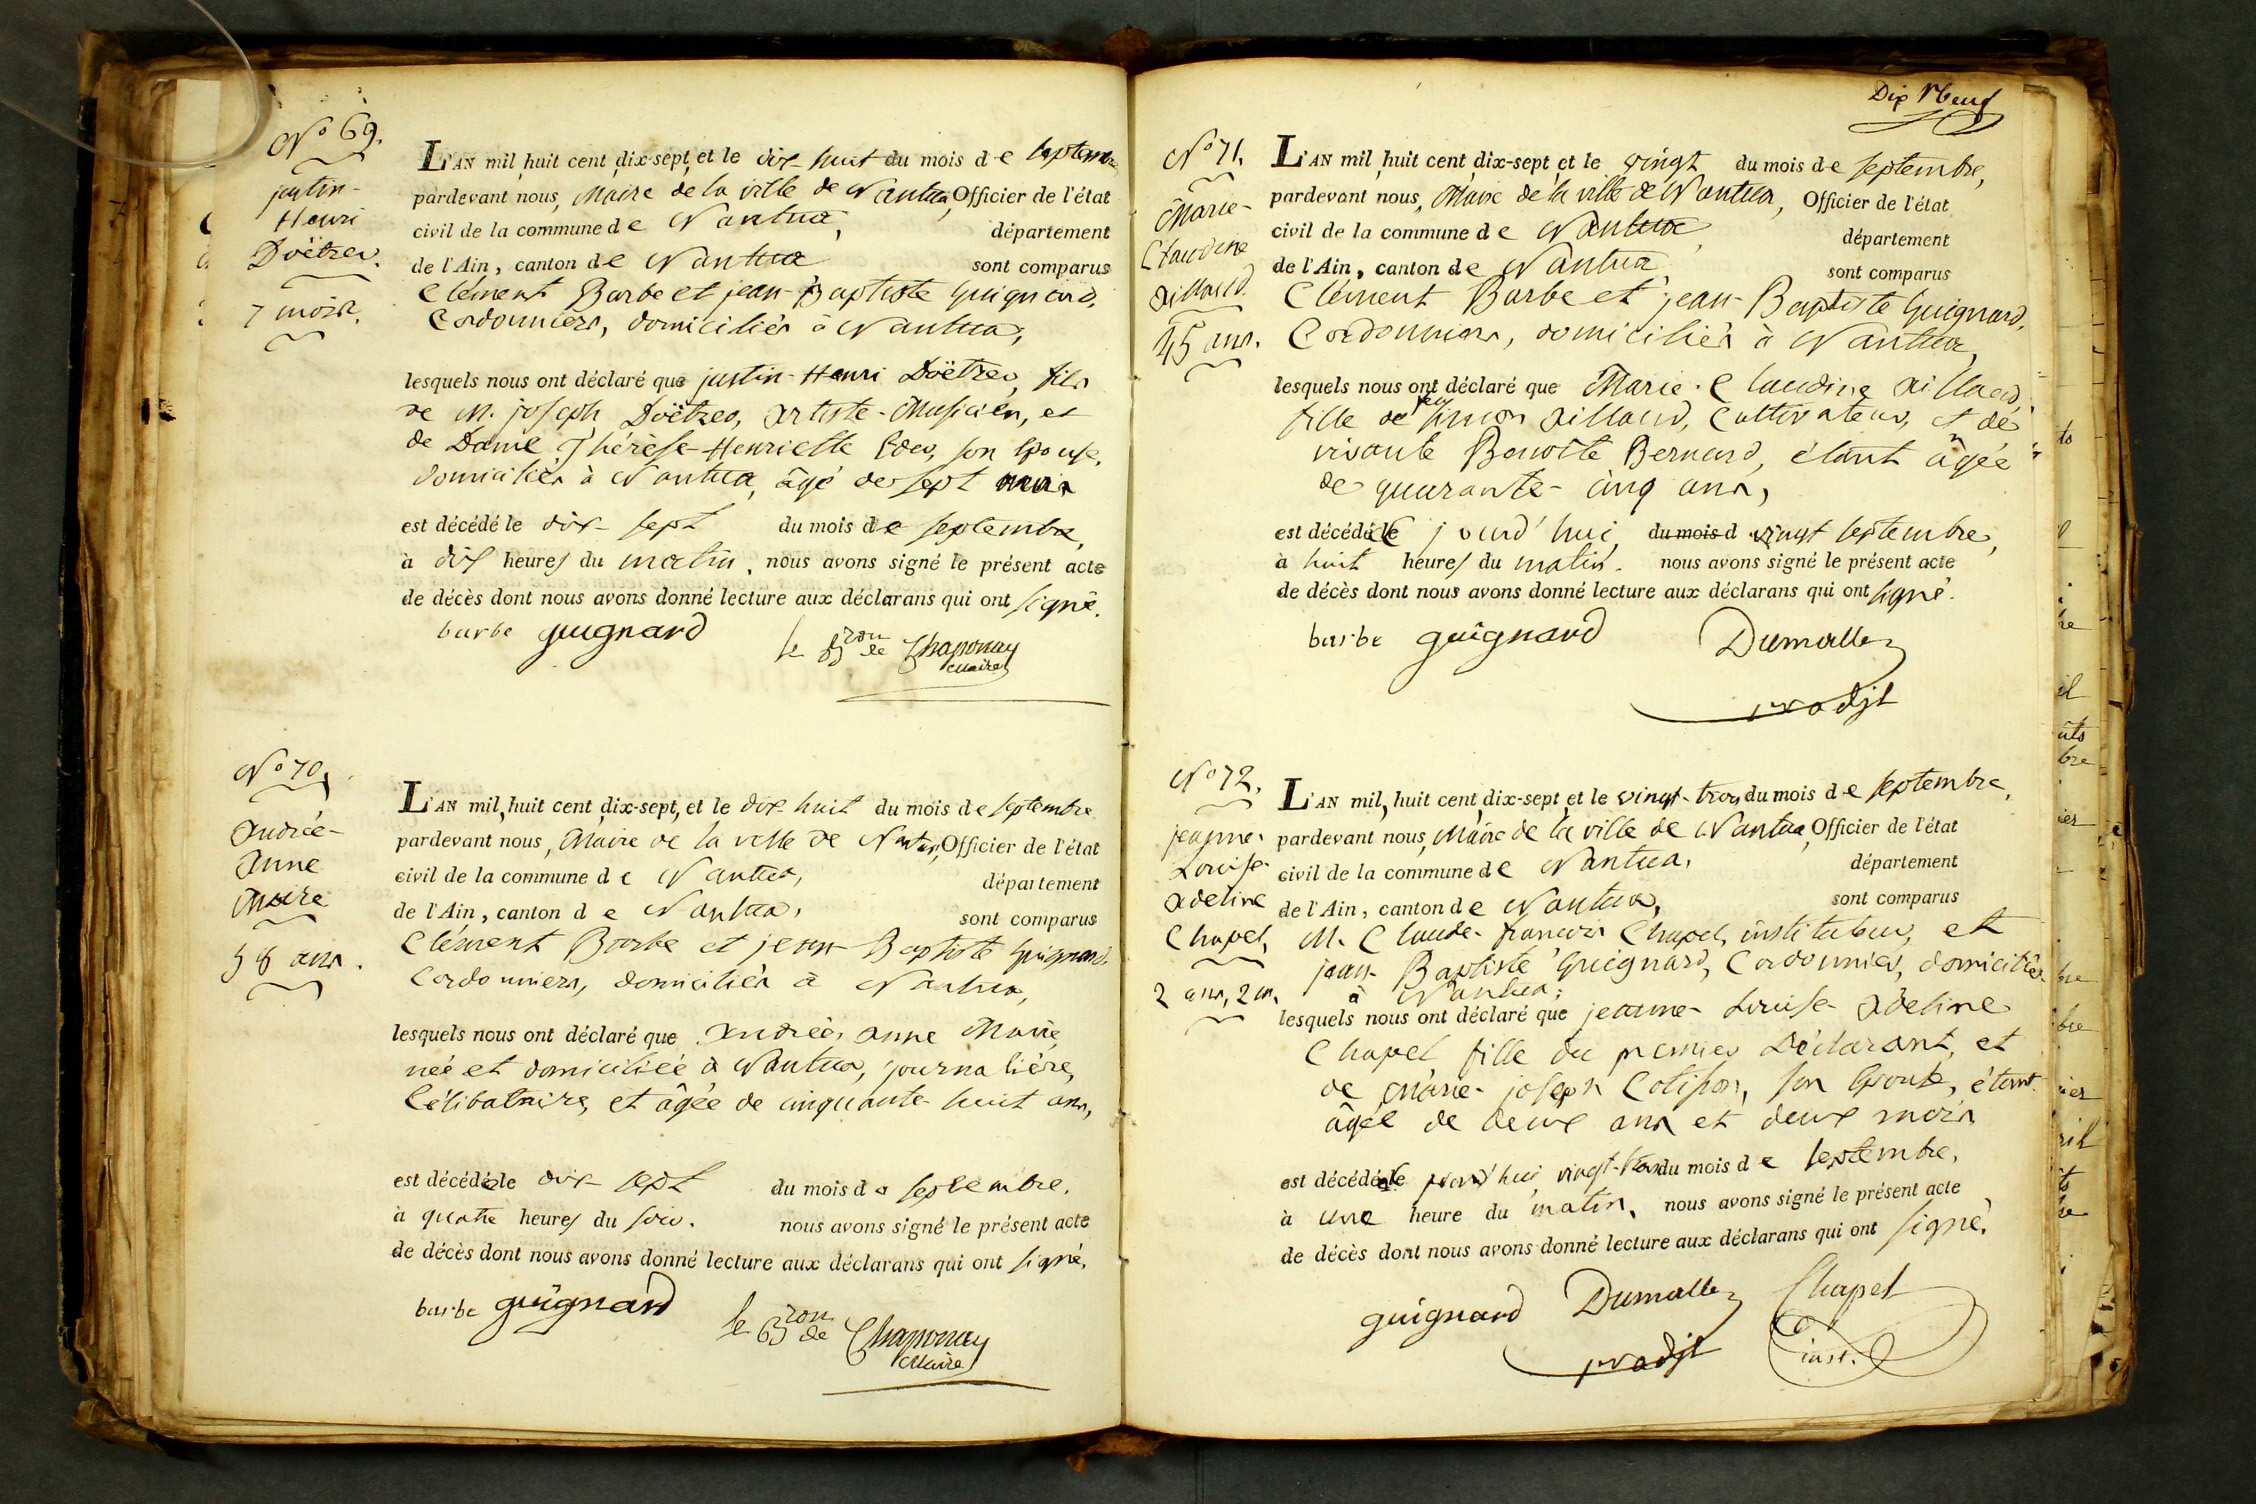 N° 69.
justin-
Henri
Doëtzer.
7 mois.
L'AN mil huit cent dix-sept, et le dix huit du mois de septembre
pardevant nous, Maire de la ville de Nantua, Officier de l'état
civil de la commune de Nantua, département
de l'Ain, canton de Nantua sont comparus
Clément Barbe et jean-Baptiste Guignard,
Cordonniers, domiciliés à Nantua,
lesquels nous ont déclaré que justin-Henri Doëtzer, fils
de M. joseph Doëtzer, artiste-Musicien, et
de Dame Thérèse-Henriette Eder, son Epouse,
domiciliés à Nantua, âgé de sept mois
est décédé le dix-sept du mois de septembre,
à dix heures du matin. nous avons signé le présent acte
de décès dont nous avons donné lecture aux déclarans qui ont signé.
barbe guignard le Bron de Chaponay
Maire
N° 70.
andrée-
anne
Maire
58 ans.
L'AN mil huit cent dix-sept, et le dix-huit du mois de septembre
pardevant nous, Maire de la ville de Nantua, Officier de l'état
civil de la commune de Nantua, département
de l'Ain, canton de Nantua, sont comparus
Clément Barbe et jean-Baptiste Guignard,
Cordonniers, domiciliés à Nantua,
lesquels nous ont déclaré que andrée, anne Maire
née et domiciliée à Nantua, journalière,
Célibataire, et âgée de cinquante-huit ans,
est décédée le dix-sept du mois de septembre.
à quatre heures du soir. nous avons signé le présent acte
de décès dont nous avons donné lecture aux déclarans qui ont signé.
barbe guignard le Bron de Chaponay
Maire
Dix Neuf
N° 71.
Marie-
Claudine
aillaud.
45 ans.
L'AN mil huit cent dix-sept et le vingt du mois de septembre,
pardevant nous, Maire de la ville de Nantua, Officier de l'état
civil de la commune de Nantua, département
de l'Ain, canton de Nantua, sont comparus
Clément Barbe et jean-Baptiste Guignard,
Cordonniers, domiciliés à Nantua,
lesquels nous ont déclaré que Marie-Claudine aillaud,
fille de feu simon aillaud, Cultivateur, et de
vivante Benoîte Bernard, étant âgée
de quarante-cinq ans,
est décédée jourd'hui du mois d vingt septembre,
à huit heures du matin. nous avons signé le présent acte
de décès dont nous avons donné lecture aux déclarans qui ont signé.
barbe guignard Dumollez
pr adjt
N° 72.
jeanne-
Louise-
adeline
Chapel,
2 ans, 2 m.
L'AN mil huit cent dix-sept et le vingt-trois du mois de septembre,
pardevant nous, Maire de la ville de Nantua, Officier de l'état
civil de la commune de Nantua, département
de l'Ain, canton de Nantua, sont comparus
M. Claude-françois Chapel, instituteur, et
jean-Baptiste Guignard, Cordonnier, domiciliés
à Nantua;
lesquels nous ont déclaré que jeanne-Louise-adeline
Chapel fille du premier Déclarant, et
de Marie-joseph son Epouse, étant
âgée de deux ans et deux mois
est décédée jourd'hui vingt-trois du mois de septembre,
à une heure du matin. nous avons signé le présent acte
de décès dont nous avons donné lecture aux déclarans qui ont signé.
guignard Dumollez Chapel
pr adjt inst.